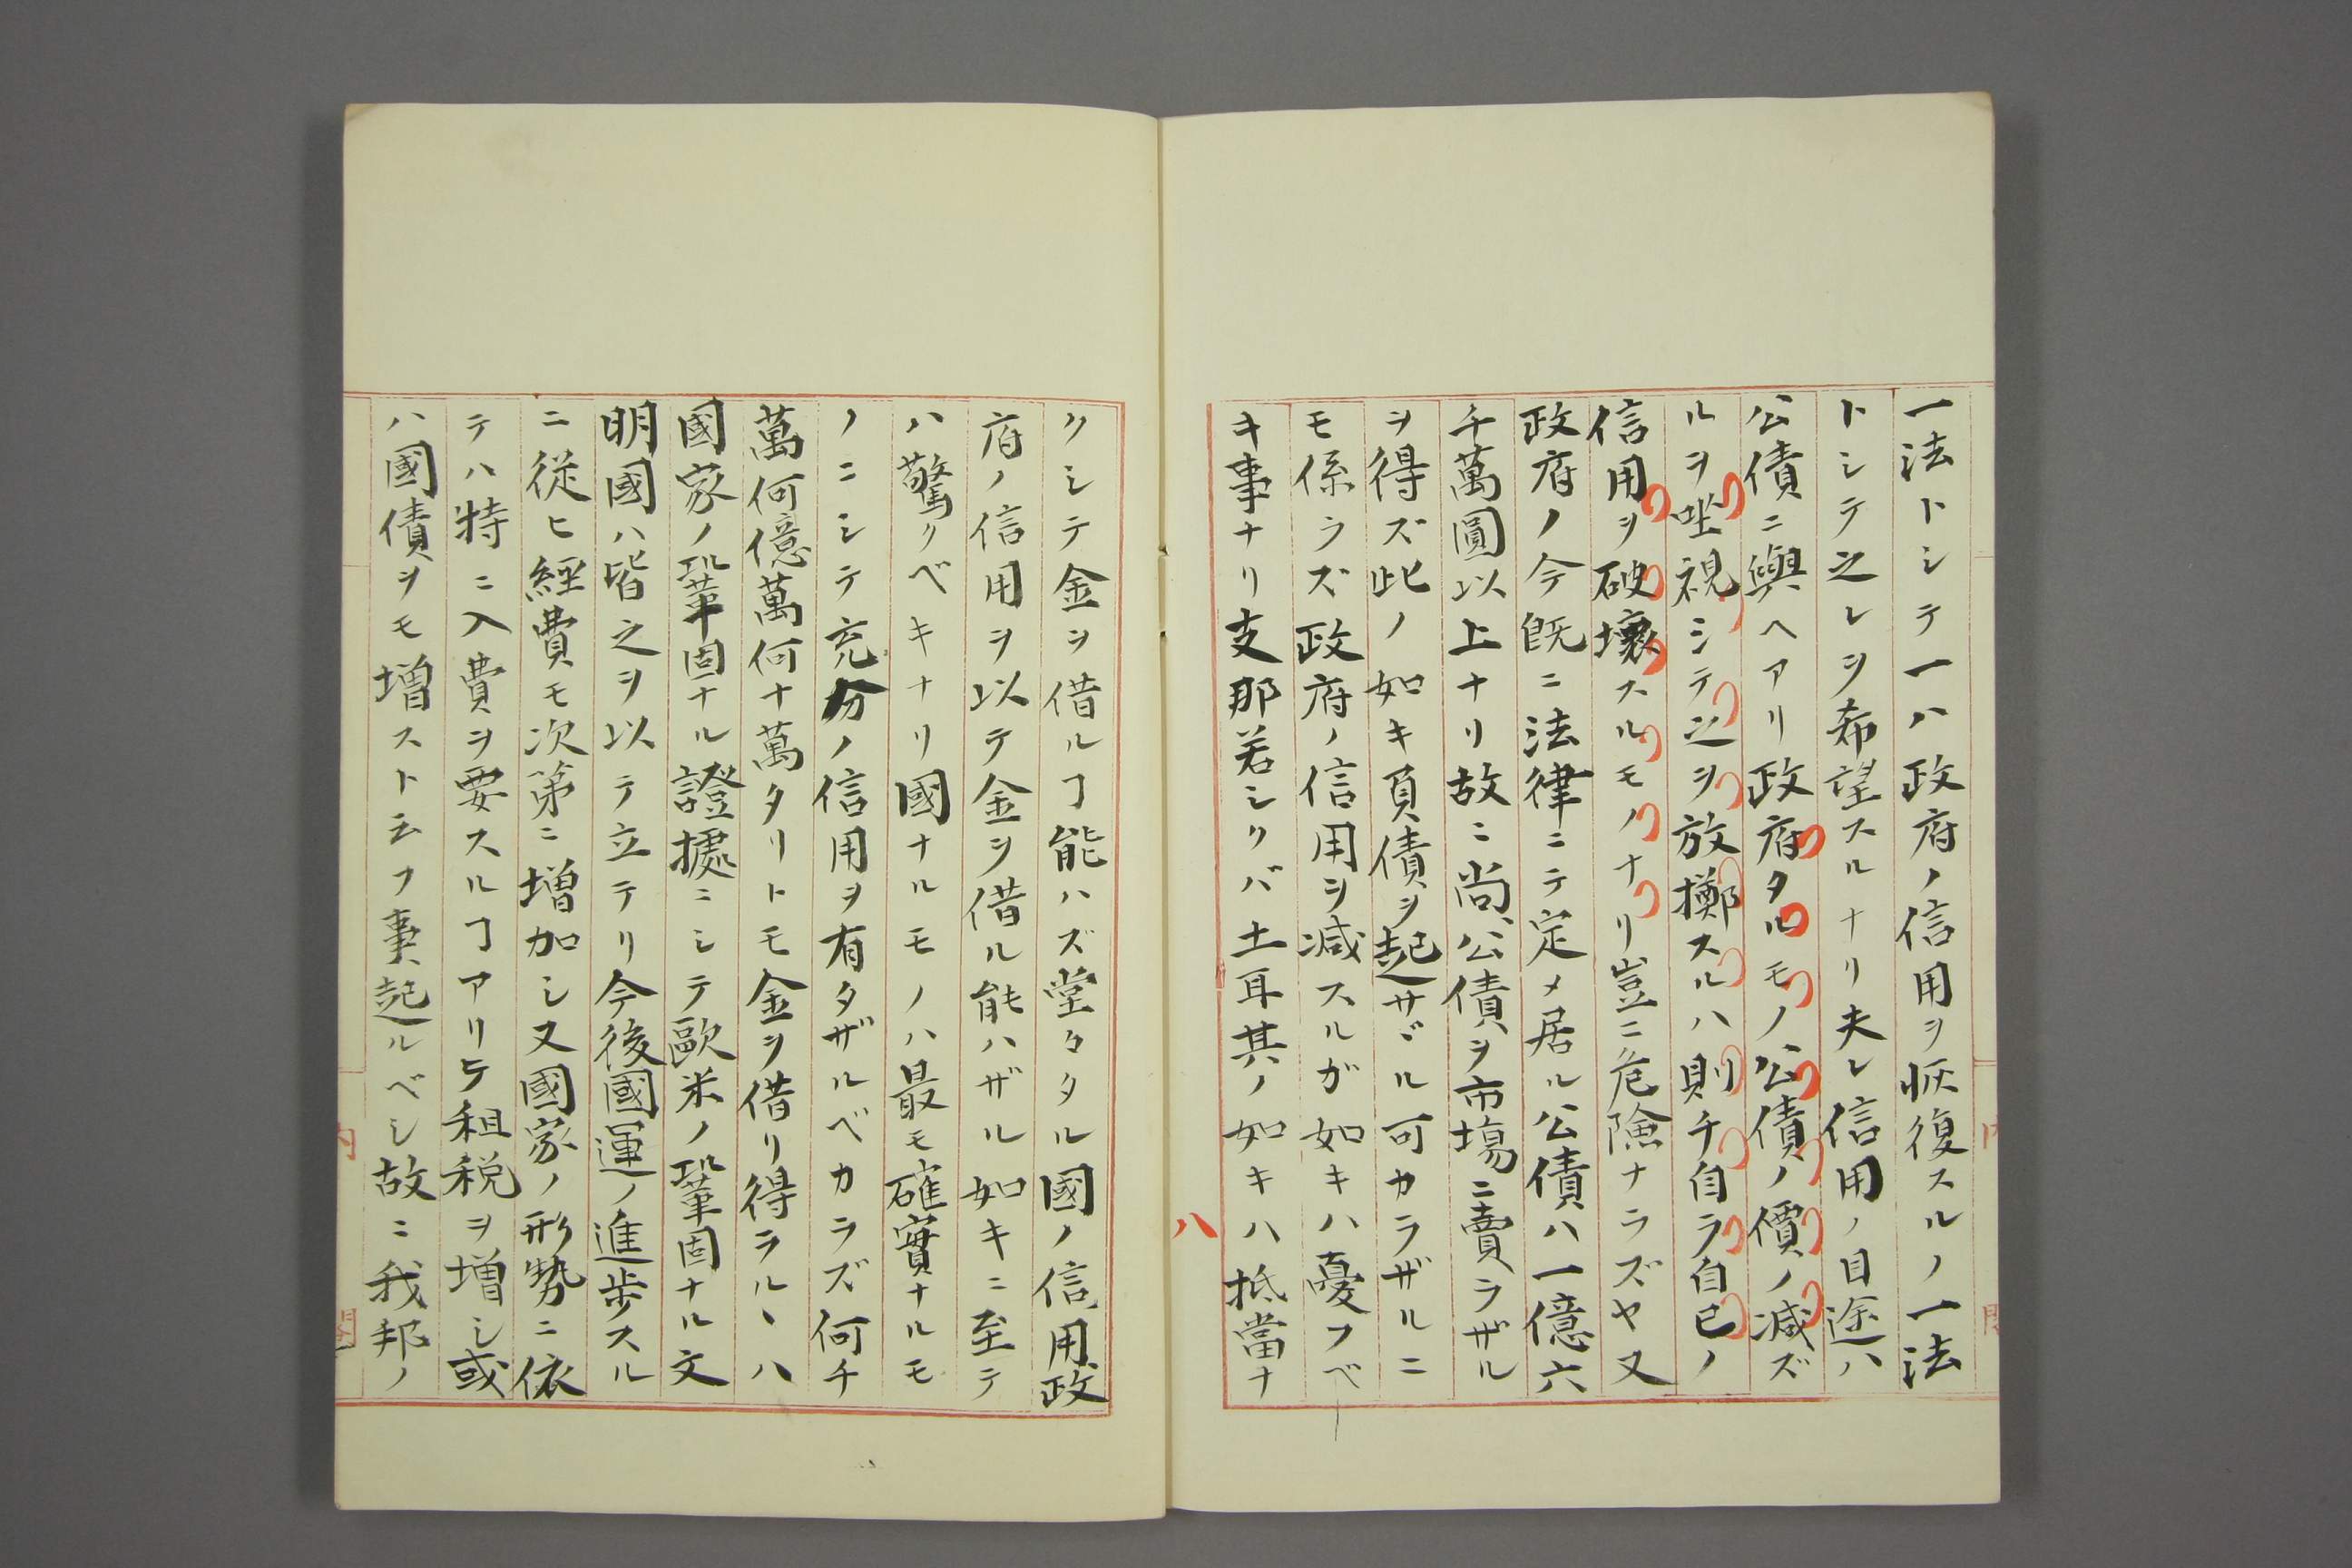 一法トシテ一ハ政府ノ信用ヲ恢復スルノ一法
トシテ之レヲ希望スルナリ夫レ信用ノ目途ハ
公債ニ與ヘアリ政府タルモノ公債ノ價ノ減ズ
ルヲ坐視シテ之ヲ放擲スルハ則チ自ラ自己ノ
信用ヲ破壞スルモノナリ豈ニ危險ナラズヤ又
政府ノ今既ニ法律ニテ定メ居ル公債ハ一億六
千萬圓以上ナリ故ニ尚、公債ヲ市塲ニ賣ラザル
ヲ得ズ此ノ如キ負債ヲ起サヾル可カラザルニ
モ係ラズ政府ノ信用ヲ減スルガ如キハ憂フベ
キ事ナリ支那若シクバ土耳其ノ如キハ抵當ナ
八
クシテ金ヲ借ルヿ能ハズ堂々タル國ノ信用政
府ノ信用ヲ以テ金ヲ借ル能ハザル如キニ至テ
ハ驚クベキナリ國ナルモノハ最モ確實ナルモ
ノニシテ充分ノ信用ヲ有タザルベカラズ何千
萬何億萬何十萬タリトモ金ヲ借リ得ラルヽハ
國家ノ鞏固ナル證據ニシテ歐米ノ鞏固ナル文
明國ハ皆之ヲ以テ立テリ今後國運ノ進歩スル
ニ從ヒ經費モ次第ニ増加シ又國家ノ形勢ニ依
テハ特ニ入費ヲ要スルヿアリテ租税ヲ増シ或
ハ國債ヲモ増スト云フ事起ルベシ故ニ我邦ノ
内
閣